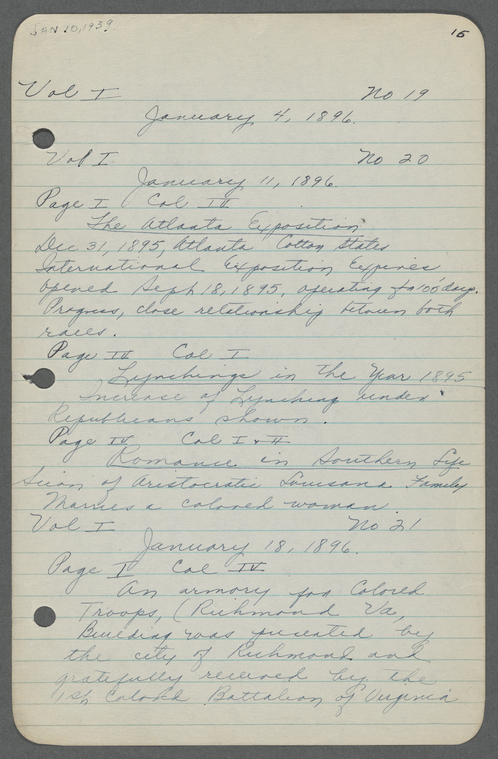 JAN 10, 1939
15
Vol I No 19
January 4, 1896.
Vol I No 20
January 11, 1896.
Page I Col IV
The Atlanta Exposition
Dec 31, 1895, Atlanta Cotton States
International Exposition Expires
opened Sept 18, 1895, operating for 100 days.
Progress, close relationship between both
races.
Page IV Col I
Lynchings in the Year 1895
Increase of Lynching under
Republicans shown.
Page IV Col I + II
Romance in Southern Life
Scion of Aristocratic Louisana Family
Marries a colored woman.
Vol I No 21
January 18, 1896.
Page I Col IV
An armory for Colored
Troops, (Richmond Va,
Building was presented by
the city of Richmond and
gratefully received by the
1st Colored Battalion of Virginia